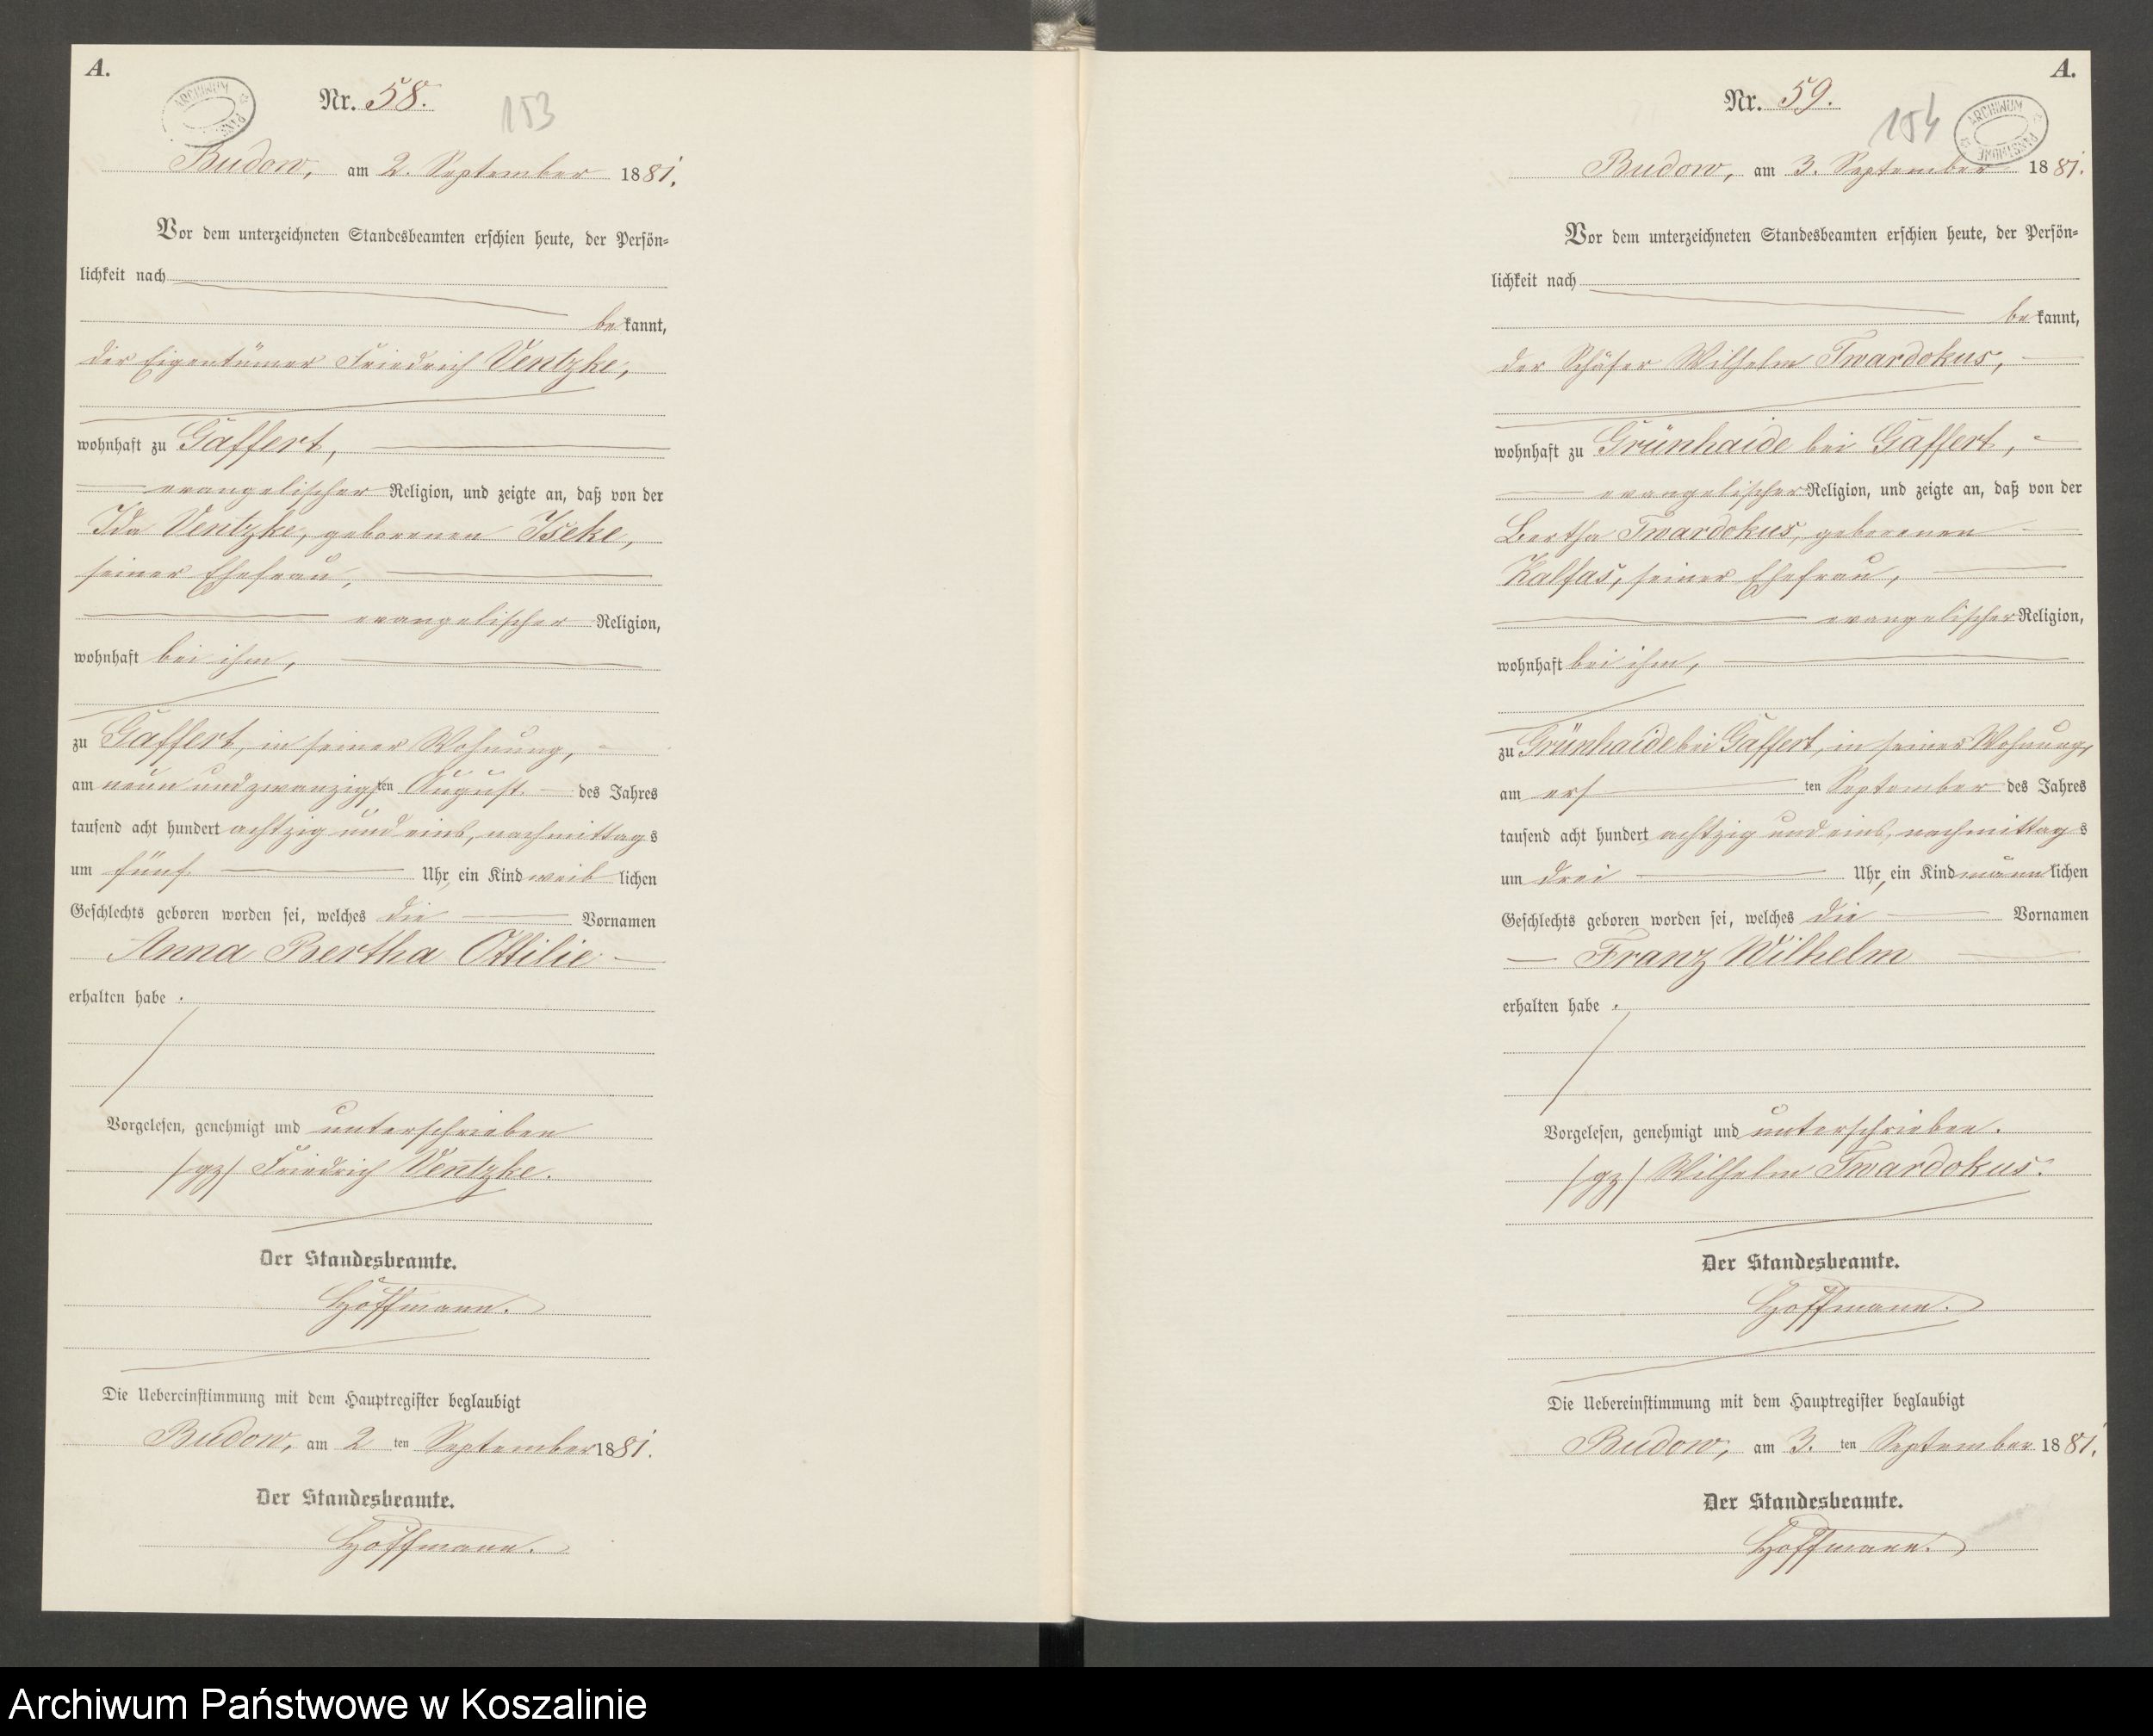 A.
ARCHIWUM PAŃSTWOWE
Nr. 58.
153
Budow, am 2. September 1881.
Vor dem unterzeichneten Standesbeamten erschien heute, der Persön-
lichkeit nach
bekannt,
der Eigentümer Friedrich Ventzke,
wohnhaft zu Gaffert,
evangelischer Religion, und zeigte an, daß von der
Ida Ventzke, geborenen Iseke,
seiner Ehefrau,
evangelischer Religion,
wohnhaft bei ihm,
zu Gaffert, in seiner Wohnung,
am neun und zwanzigsten August des Jahres
tausend acht hundert achtzig und eins, nachmittags
um fünf Uhr, ein Kind weiblichen
Geschlechts geboren worden sei, welches die Vornamen
Anna Bertha Ottilie
erhalten habe.
Vorgelesen, genehmigt und unterschrieben
/gz/ Friedrich Ventzke.
Der Standesbeamte.
Hoffmann.
Die Uebereinstimmung mit dem Hauptregister beglaubigt
Budow, am 2 ten September 1881.
Der Standesbeamte.
Hoffmann.
A.
Nr. 59.
154
ARCHIWUM PAŃSTWOWE
Budow, am 3. September 1881.
Vor dem unterzeichneten Standesbeamten erschien heute, der Persön-
lichkeit nach
bekannt,
der Schäfer Wilhelm Twardokus,
wohnhaft zu Grünhaide bei Gaffert,
evangelischer Religion, und zeigte an, daß von der
Bertha Twardokus, geborenen
Kalfas, seiner Ehefrau,
evangelischer Religion,
wohnhaft bei ihm,
zu Grünhaide bei Gaffert, in seiner Wohnung,
am ersten September des Jahres
tausend acht hundert achtzig und eins, nachmittags
um drei Uhr, ein Kind männlichen
Geschlechts geboren worden sei, welches die Vornamen
Franz Wilhelm
erhalten habe.
Vorgelesen, genehmigt und unterschrieben.
/gz/ Wilhelm Twardokus.
Der Standesbeamte.
Hoffmann.
Die Uebereinstimmung mit dem Hauptregister beglaubigt
Budow, am 3. ten September 1881.
Der Standesbeamte.
Hoffmann.
Archiwum Państwowe w Koszalinie